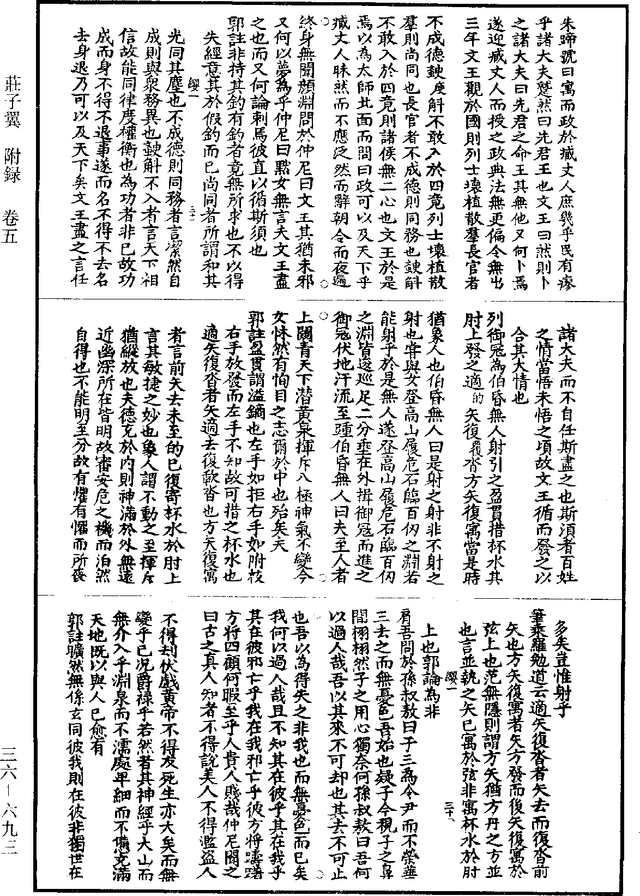 莊子翼 附録 卷五
三六—六九三
朱蹄號曰寓而政於臧丈人庶幾乎民有瘳
乎諸大夫蹵然曰先君王也文王曰然則卜
之諸大夫曰先君之命王其無他又何卜焉
遂迎臧丈人而授之政典法無更偏令無出
三年文王觀於國則列士壞植散羣長官者
不成德斔斛不敢入於四竟列士壞植散
羣則尚同也長官者不成德則同務也斔斛
不敢入於四竟則諸侯無二心也文王於是
焉以為太師北面而問曰政可以及天下乎
臧丈人昧然而不應泛然而辭朝令而夜遁
終身無聞顏淵問於仲尼曰文王其猶未邪
又何以夢為乎仲尼曰黙女無言夫文王盡
之也而又何論刺焉彼直以循斯須也
郭註非持其釣有釣者竟無所求也不以得
失經意其於假釣而已尚同者所謂和其
光同其塵也不成德則同務者言潔然自
成則與衆務異也斔斛不入者言天下相
信故能同律度權衡也為功者非已故功
成而身不得不退事遂而名不得不去名
去身退乃可以及天下矣文王盡之言任
諸大夫而不自任斯盡之也斯須者百姓
之情當悟未悟之頃故文王循而發之以
合其大情也
列御寇為伯昏無人射引之盈貫措杯水其
肘上發之適的矢復沓方矢復寓當是時
猶象人也伯昏無人曰是射之射非不射之
射也甞與女登高山履危石臨百仞之淵若
能射乎於是無人遂登高山履危石臨百仞
之淵背逡巡足二分垂在外揖御寇而進之
御寇伏地汗流至踵伯昏無人曰夫至人者
上闚青天下潛黄泉揮斥八極神氣不變今
女怵然有恂目之志爾於中也殆矣夫
郭註盈貫謂溢鏑也左手如拒右手如附枝
右手放發而左手不知故可措之杯水也
適矢復沓者矢適去復歃沓也方矢復寓
者言前矢去未至的已復寄杯水於肘上
言其敏捷之妙也象人謂不動之至揮斥
猶縱放也夫德充於内則神滿於外無遠
近幽深所在皆明故審安危之機而泊然
自得也不能明至分故有懼有懼而所喪
多矣豈惟射乎
筆乘羅勉道云適矢復沓者矢去而復沓前
矢也方矢復寓者矢方發而後矢復寓於
弦上也范無隱則謂方矢猶方舟之方並
也言並執之矢已寓於弦非寓杯水於肘
上也郭論為非
肩吾問於孫叔敖曰子三為令尹而不榮華
三去之而無憂色吾始也疑子今視子之鼻
間栩栩然子之用心獨柰何孫叔敖曰吾何
以過人哉吾以其來不可却也其去不可止
也吾以為得失之非我也而無憂色而已矣
我何以過人哉且不知其在彼乎其在我乎
其在彼邪亡乎我在我邪亡乎彼方將躊躇
方將四顧何暇至乎人貴人賤哉仲尼聞之
曰古之真人知者不得說美人不得濫盜人
不得刦伏戲黄帝不得友死生亦大矣而無
變乎已况爵禄乎若然者其神經乎大山而
無介入乎淵泉而不濡處卑細而不憊充滿
天地既以與人已愈有
郭註曠然無係玄同彼我則在彼非獨世在